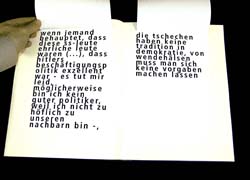 wenn jemand
behauptet, dass
diese ss-leute
ehrliche leute
waren (...), dass
hitlers
beschäftigungsp
olitik exzellent
war - es tut mir
leid,
möglicherweise
bin ich kein
guter politiker,
weil ich nicht zu
höflich zu
unseren
nachbarn bin -,
die tschechen
haben keine
tradition in
demokratie, von
wendehälsen
muss man sich
keine vorgaben
machen lassen